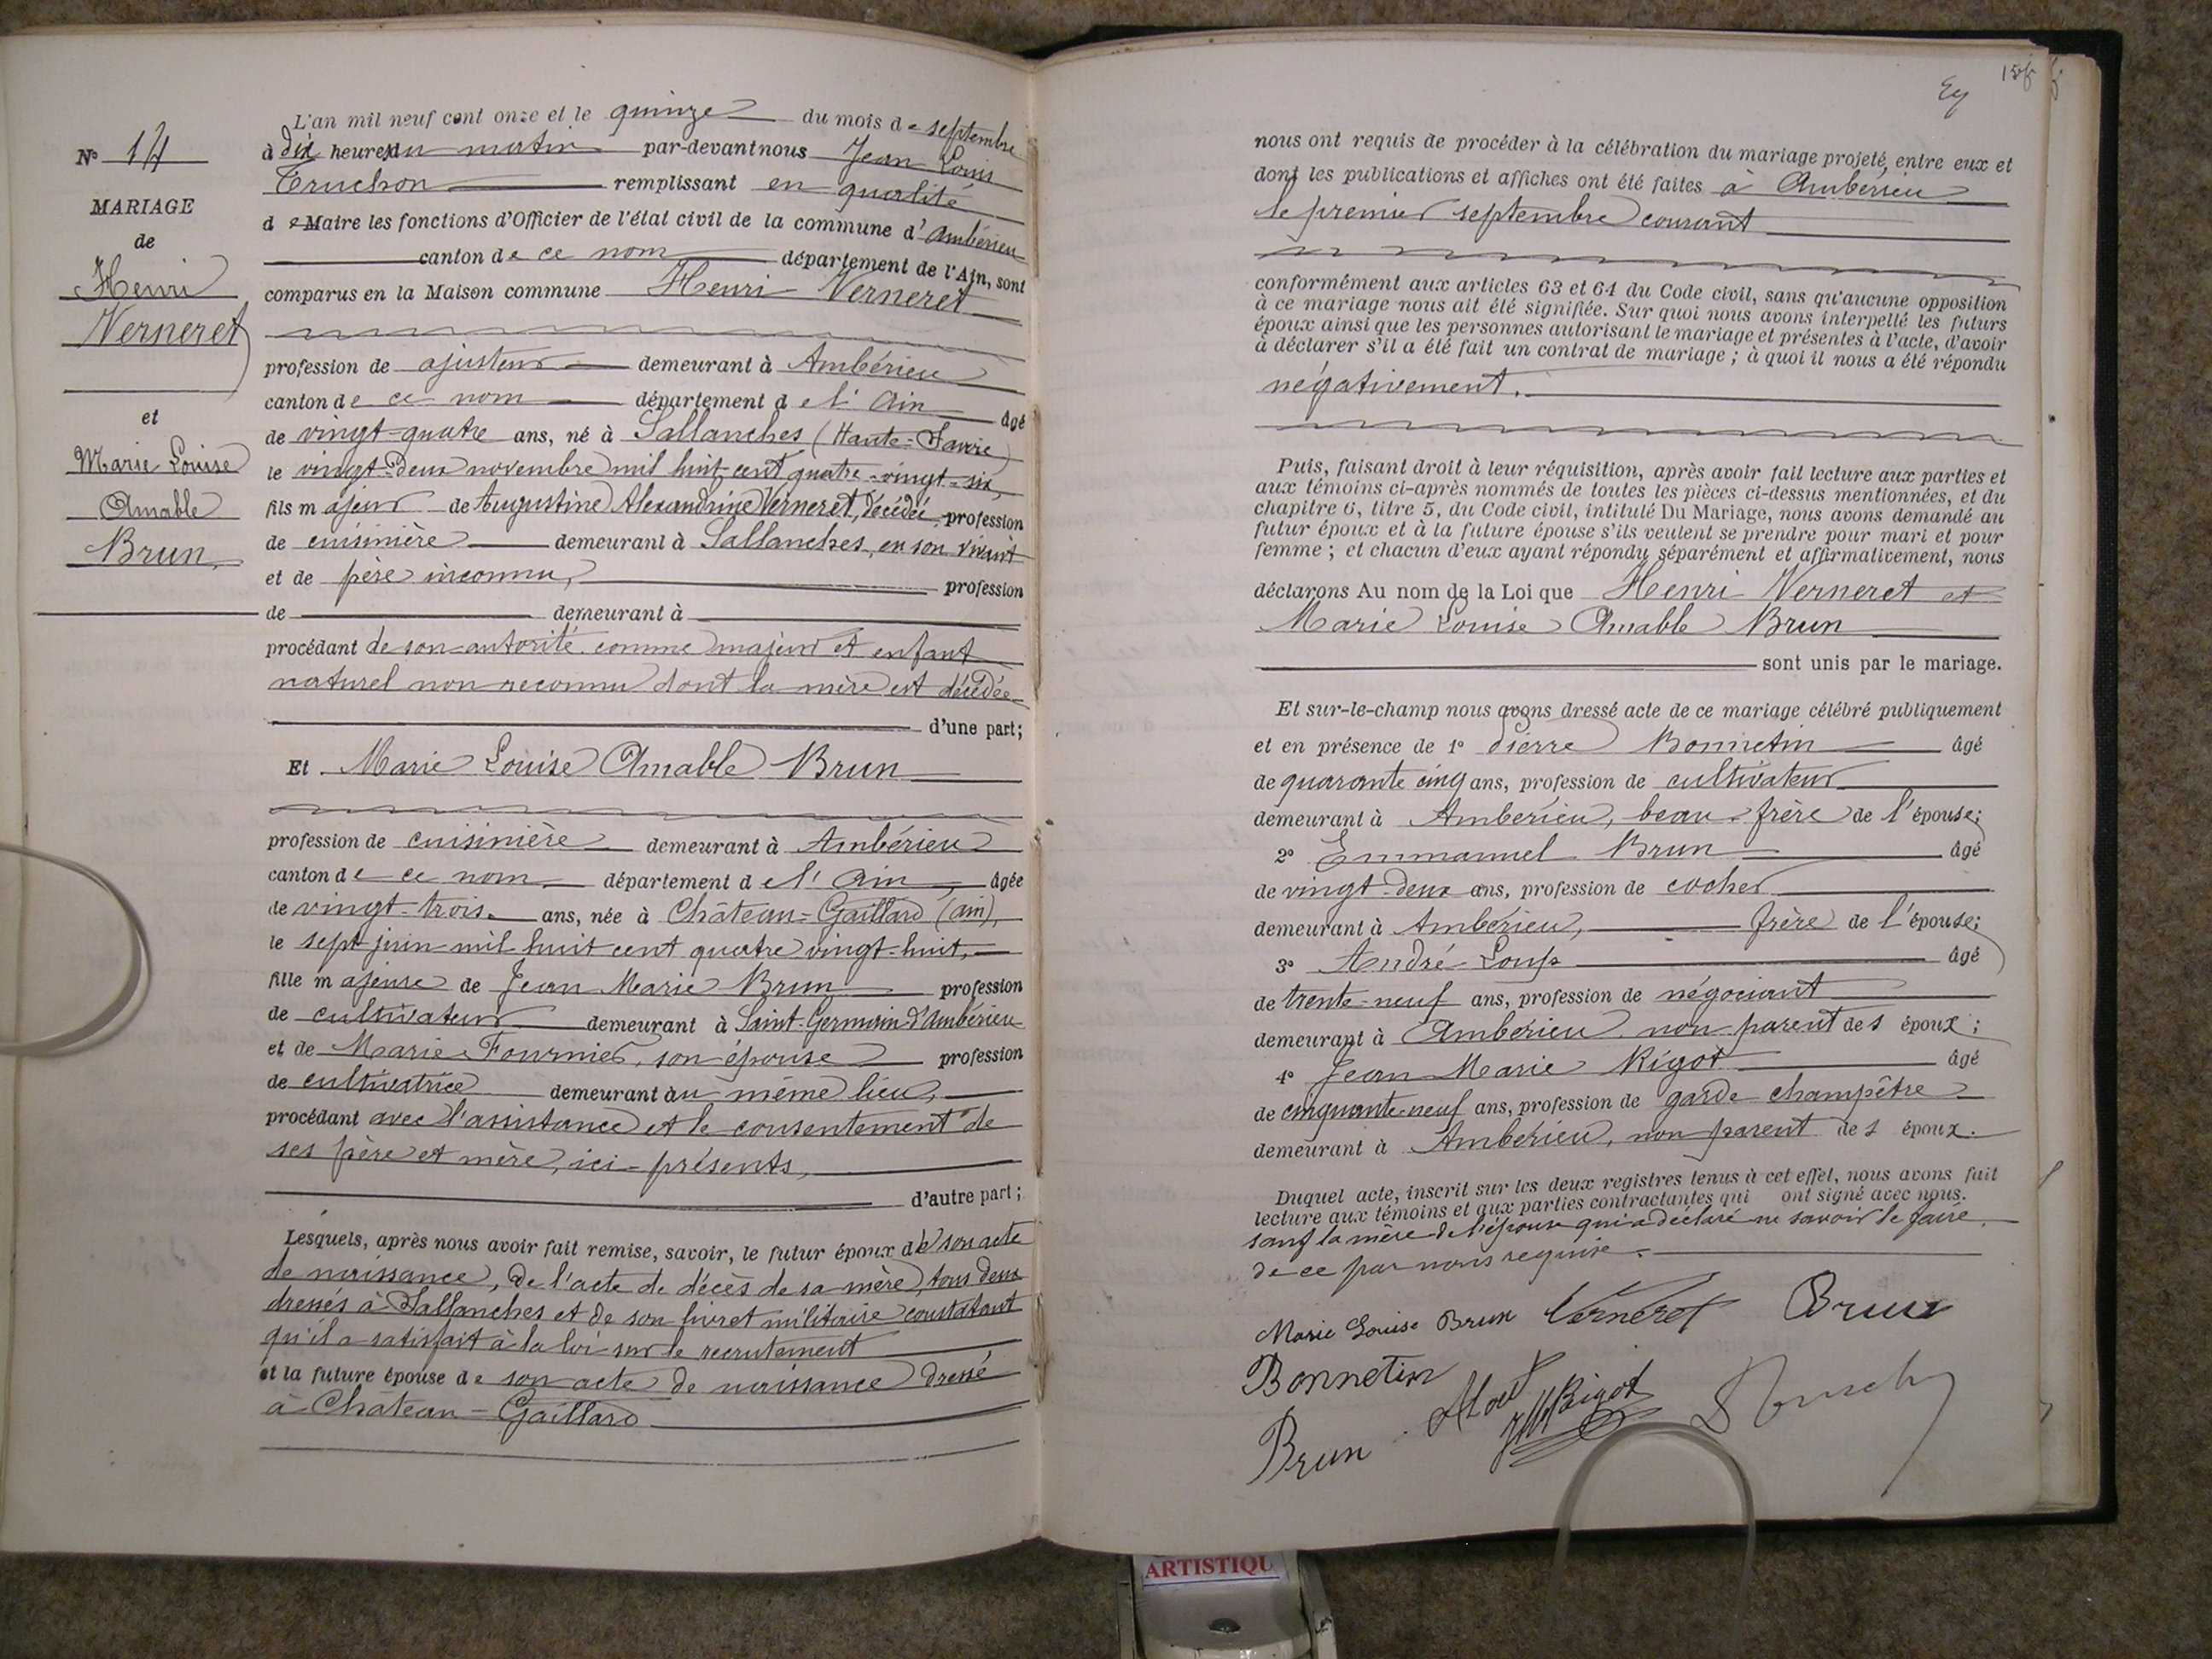 N° 14
MARIAGE
de
Henri
Verneret
et
Marie Louise
Amable
Brun
L'an mil neuf cent onze et le quinze du mois de septembre
à dix heures du matin par-devant nous Jean Louis
Truchon remplissant en qualité
de Maire les fonctions d'Officier de l'état civil de la commune d'Ambérieu
canton de ce nom département de l'Ain, sont
comparus en la Maison commune Henri Verneret
profession de ajusteur demeurant à Ambérieu
canton de ce nom département de l'Ain âgé
de vingt-quatre ans, né à Sallanches (Haute-Savoie)
le vingt-deux novembre mil huit cent quatre-vingt-six,
fils majeur de Augustine Alexandrine Verneret, décédée, profession
de cuisinière demeurant à Sallanches, en son vivant
et de père inconnu, profession
de demeurant à
procédant de son autorité comme majeur et enfant
naturel non reconnu dont la mère est décédée
d'une part;
Et Marie Louise Amable Brun
profession de cuisinière demeurant à Ambérieu
canton de ce nom département de l'Ain, âgée
de vingt-trois ans, née à Château-Gaillard (Ain),
le sept juin mil huit cent quatre vingt-huit,
fille majeure de Jean Marie Brun profession
de cultivateur demeurant à Saint-Germain-d'Ambérieu
et de Marie Fournier, son épouse profession
de cultivatrice demeurant au même lieu,
procédant avec l'assistance et le consentement de
ses père et mère, ici présents,
d'autre part;
Lesquels, après nous avoir fait remise, savoir, le futur époux de son acte
de naissance, de l'acte de décès de sa mère, tous deux
dressés à Sallanches et de son livret militaire constatant
qu'il a satisfait à la loi sur le recrutement
et la future épouse de son acte de naissance dressé
à Château-Gaillard
nous ont requis de procéder à la célébration du mariage projeté, entre eux et
dont les publications et affiches ont été faites à Ambérieu
le premier septembre courant
conformément aux articles 63 et 64 du Code civil, sans qu'aucune opposition
à ce mariage nous ait été signifiée. Sur quoi nous avons interpellé les futurs
époux ainsi que les personnes autorisant le mariage et présentes à l'acte, d'avoir
à déclarer s'il a été fait un contrat de mariage; à quoi il nous a été répondu
négativement.
Puis, faisant droit à leur réquisition, après avoir fait lecture aux parties et
aux témoins ci-après nommés de toutes les pièces ci-dessus mentionnées, et du
chapitre 6, titre 5, du Code civil, intitulé Du Mariage, nous avons demandé au
futur époux et à la future épouse s'ils veulent se prendre pour mari et pour
femme; et chacun d'eux ayant répondu séparément et affirmativement, nous
déclarons Au nom de la Loi que Henri Verneret et
Marie Louise Amable Brun
sont unis par le mariage.
Et sur-le-champ nous avons dressé acte de ce mariage célébré publiquement
et en présence de 1° Pierre Bonnetin âgé
de quarante cinq ans, profession de cultivateur
demeurant à Ambérieu, beau-frère de l'épouse;
2° Emmanuel Brun âgé
de vingt-deux ans, profession de cocher
demeurant à Ambérieu, frère de l'épouse;
3° André Loup âgé
de trente-neuf ans, profession de négociant
demeurant à Ambérieu non parent des époux;
4° Jean Marie Rigot âgé
de cinquante-neuf ans, profession de garde champêtre
demeurant à Ambérieu, non parent des époux.
Duquel acte, inscrit sur les deux registres tenus à cet effet, nous avons fait
lecture aux témoins et aux parties contractantes qui ont signé avec nous.
sauf la mère de l'épouse qui a déclaré ne savoir le faire
de ce par nous requise.
Marie Louise Brun Verneret Brun
Bonnetin ALoup JMRigot
Brun
ARTISTIQU